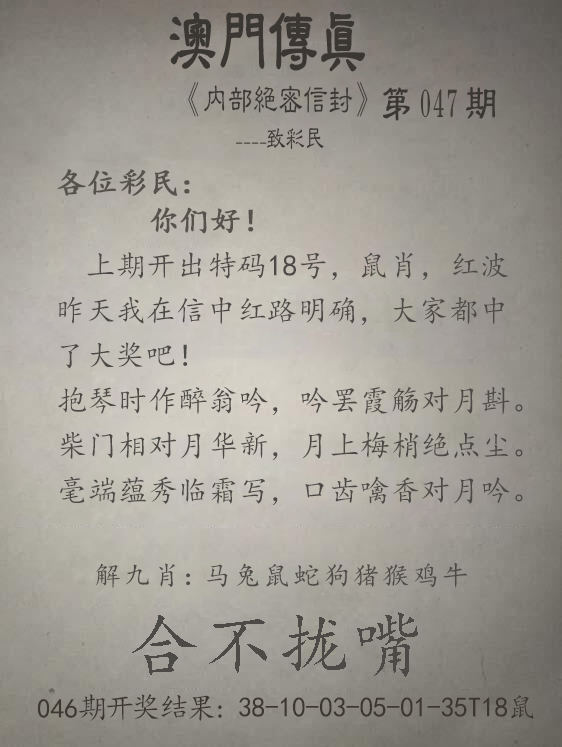 澳門傳眞
《内部絕密信封》第047期
----致彩民
各位彩民:
你们好!
上期开出特码18号，鼠肖，红波
昨天我在信中红路明确，大家都中
了大奖吧!
抱琴时作醉翁吟，吟罢霞觞对月斟。
柴门相对月华新，月上梅梢绝点尘。
毫端蕴秀临霜写，口齿噙香对月吟。
解九肖:马兔鼠蛇狗猪猴鸡牛
合不拢嘴
046期开奖结果: 38-10-03-05-01-35T18鼠